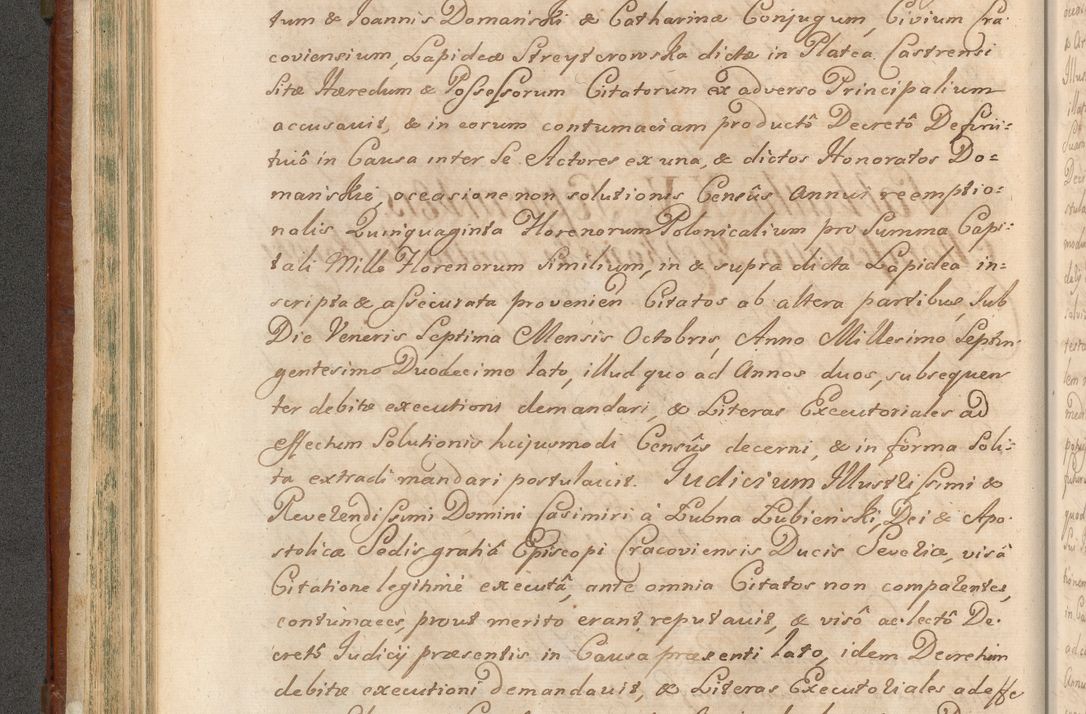 tum & Joannis Domański & Catharinæ Conjugum, Civium Cra-
coviensium, Lapideæ Streyterowska dictæ in Platea Castrensi
Sitæ Hæredum & Possessorum Citatorum ex adverso Principalium
accusavit, & in eorum contumaciam productô Decretô Defini=
tivô in Causa inter Se Actores ex una, & dictos Honoratos Do=
mańskie, occasione non solutionis Censûs Annui reemptio=
nalis Quinquaginta Florenorum Polonicalium pro Summa Capi=
tali Mille Florenorum Similium, in & supra dicta Lapidea in=
scripta & assecurata provenien Citatos ab altera partibus, Sub
Die Veneris Septima Mensis Octobris, Anno Millesimo Septin-
gentesimo Duodecimo lato, illud quo ad Annos duos, subsequen
ter debitæ executioni demandari, & Literas Executoriales ad
effectum Solutionis hujusmodi Censûs decerni, & in forma Soli=
ta extradi mandari postulavit. Judicium Illustrissimi &
Reverendissimi Domini Casimiri à Łubna Łubieński, Dei & Apo-
stolicæ Sedis gratiâ Episcopi Cracoviensis Ducis Severiæ, visâ
Citatione legitimè executâ, ante omnia Citatos non comparentes,
contumaces, prout merito erant reputavit, & visô ac lectô De-
cretô Judicij præsentis in Causa præsenti lato, idem Decretum
debitæ executioni demandavit, & Literas Executoriales ad effe